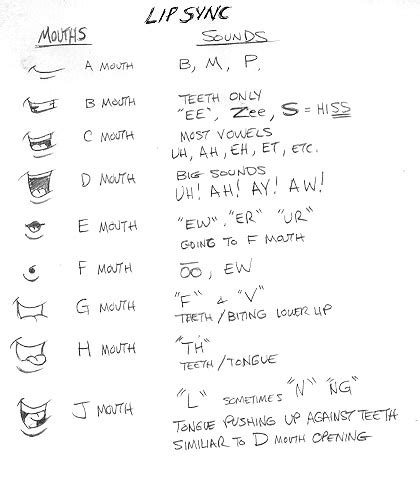 LIP SYNC
MOUTHS SOUNDS
A MOUTH B, M, P.
B MOUTH TEETH ONLY
"EE", Zee, S = HISS
C MOUTH MOST VOWELS
UH, AH, EH, ET, ETC.
D MOUTH BIG SOUNDS
UH! AH! AY! AW!
E MOUTH "EW". "ER" "UR"
GOING TO F MOUTH
F MOUTH OO, EW
G MOUTH "F" & "V"
TEETH/BITING LOWER LIP
H MOUTH "TH"
TEETH/TONGUE
J MOUTH "L" SOMETIMES "N" "NG"
TONGUE PUSHING UP AGAINST TEETH
SIMILIAR TO D MOUTH OPENING